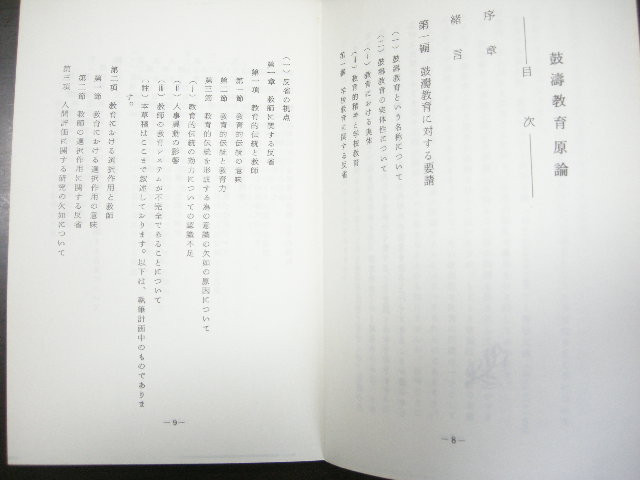 鼓濤教育原論
目次
序章
緒言
第一編 鼓濤教育に対する要請
(一) 鼓濤教育という名称について
(二) 鼓濤教育の実体性について
(i) 教育における実体
(ii) 教育的精神と学校教育
第一部 学校教育に関する反省
—8—
(一) 反省の視点
第一章 教師に関する反省
第一項 教育的伝統と教師
第一節 教育的伝統の意味
第二節 教育的伝統と教育力
第三節 教育的伝統を形成する為の意識の欠如の原因について
(i) 教育的伝統の効力についての認識不足
(ii) 人事異動の影響
(iii) 教師の教育システムが不完全であることについて
(註) 本草稿はここまで叙述しております。以下は、執筆計画中のものでありま
す。
第二項 教育における選択作用と教師
第一節 教育における選択作用の意味
第二節 教師の選択作用に関する反省
第三項 人間評価に関する研究の欠如について
—9—